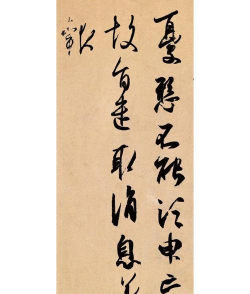 憂懸不能須臾忘
故旨遣取消息
報